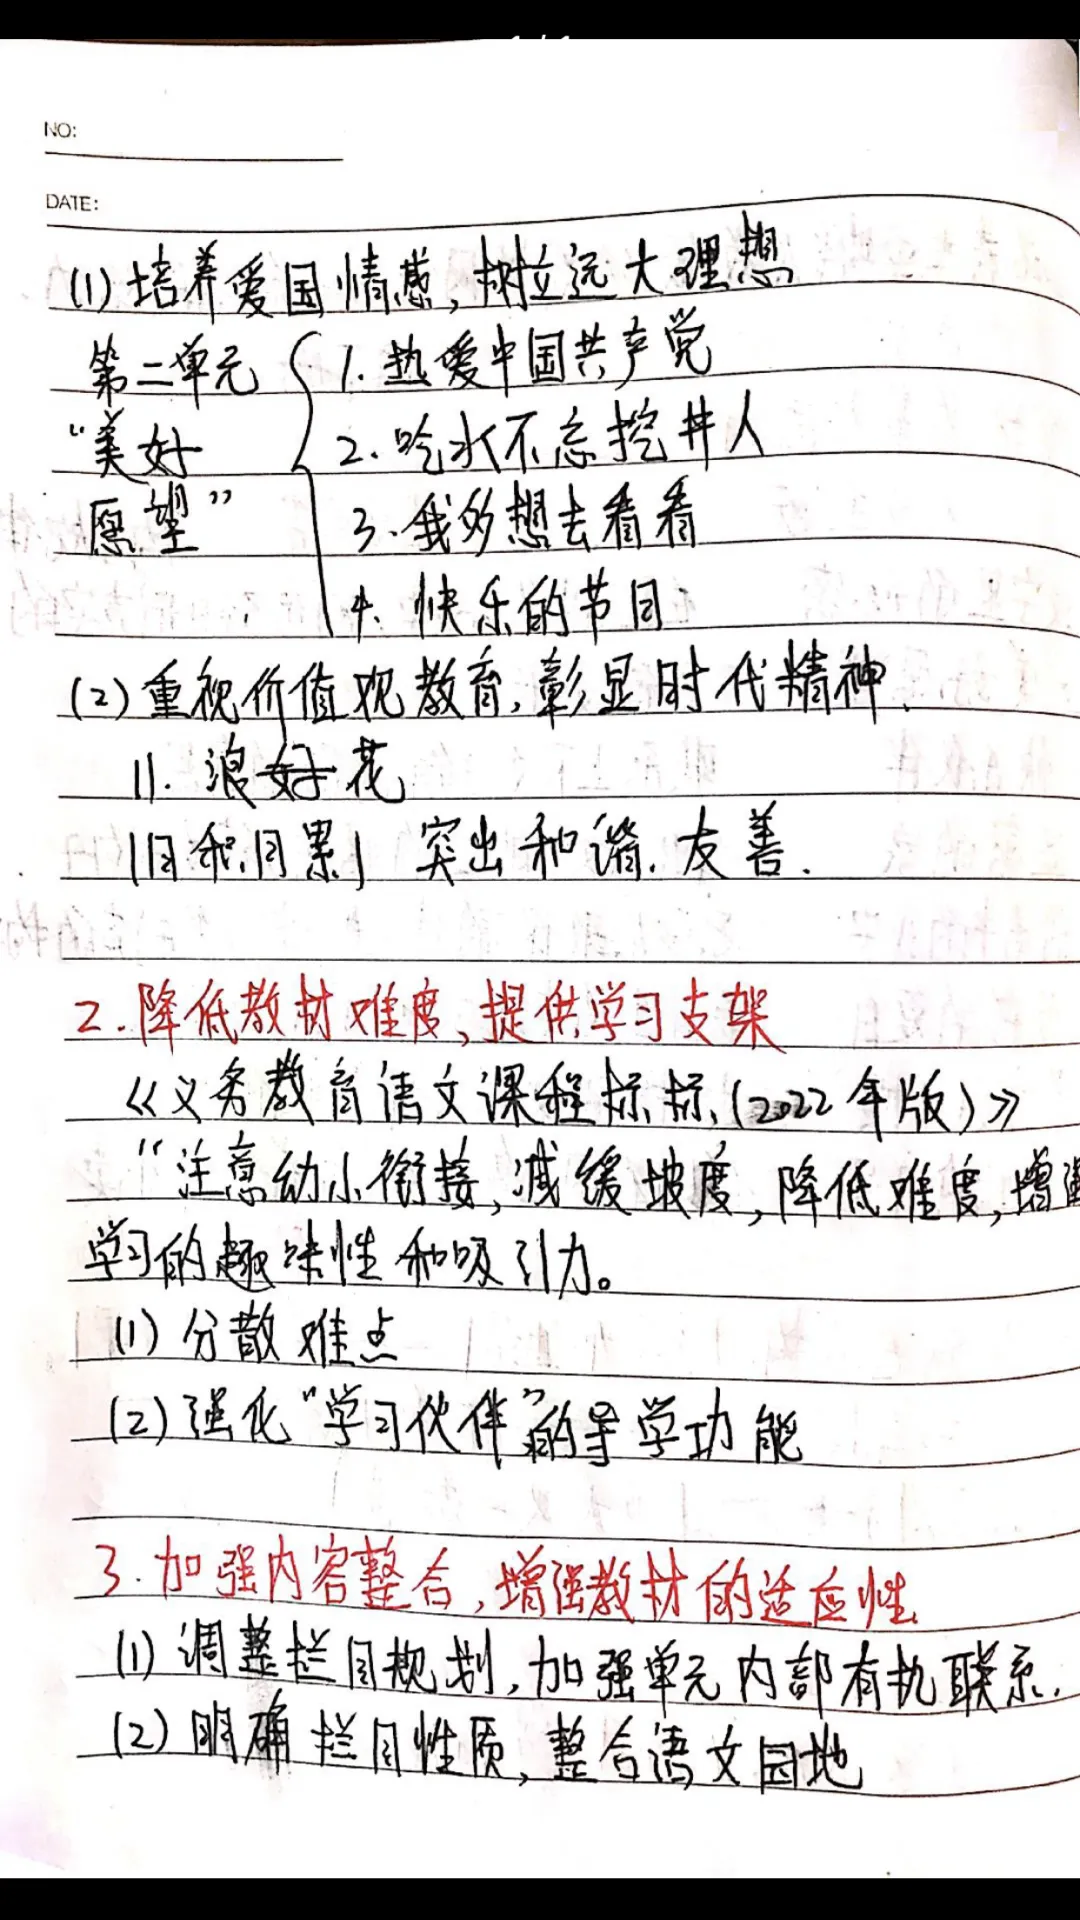 NO:
DATE:
(1)培养爱国情感,树立远大理想
第二单元 1.热爱中国共产党
“美好 2.吃水不忘挖井人
愿望” 3.我多想去看看
4.快乐的节日
(2)重视价值观教育,彰显时代精神.
11.浪好花
「日积月累」 突出和谐.友善.
2.降低教材难度,提供学习支架
《义务教育语文课程标标(2022年版)》
“注意幼小衔接,减缓坡度,降低难度,增强
学习的趣味性和吸引力。
(1)分散难点
(2)强化“学习伙伴”的导学功能
3.加强内容整合,增强教材的适应性
(1)调整栏目规划,加强单元内部有机联系.
(2)明确栏目性质,整合语文园地